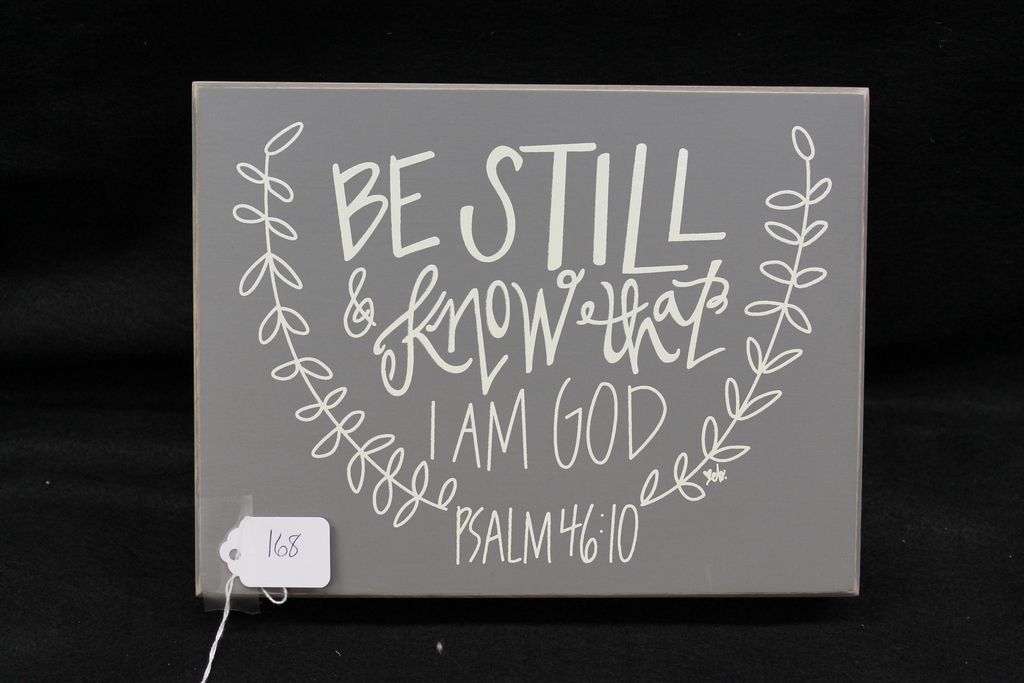 BE STILL
& know that
I AM GOD
PSALM 46:10
168